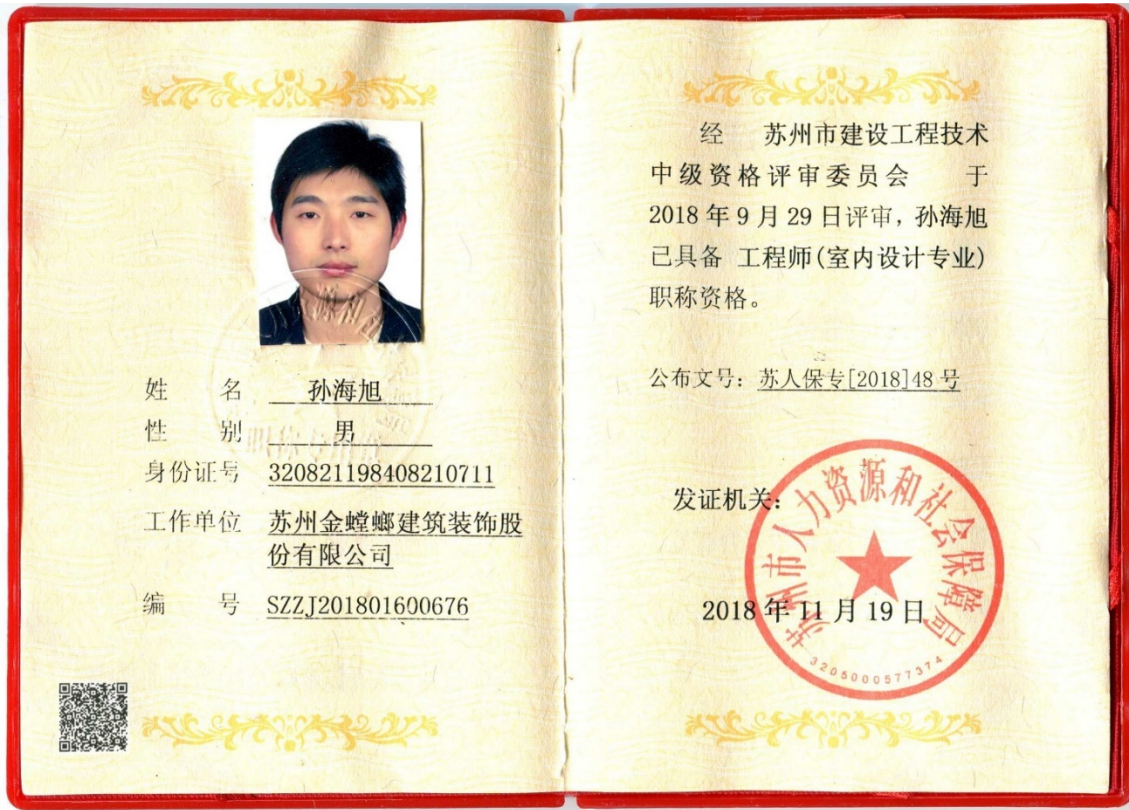 姓 名 孙海旭
性 别 男
身份证号 320821198408210711
工作单位 苏州金螳螂建筑装饰股
份有限公司
编 号 SZZJ201801600676
经 苏州市建设工程技术
中级资格评审委员会 于
2018年9月29日评审,孙海旭
已具备 工程师(室内设计专业)
职称资格。
公布文号:苏人保专[2018]48号
发证机关:
苏州市人力资源和社会保障局
2018年11月19日
3205000577374